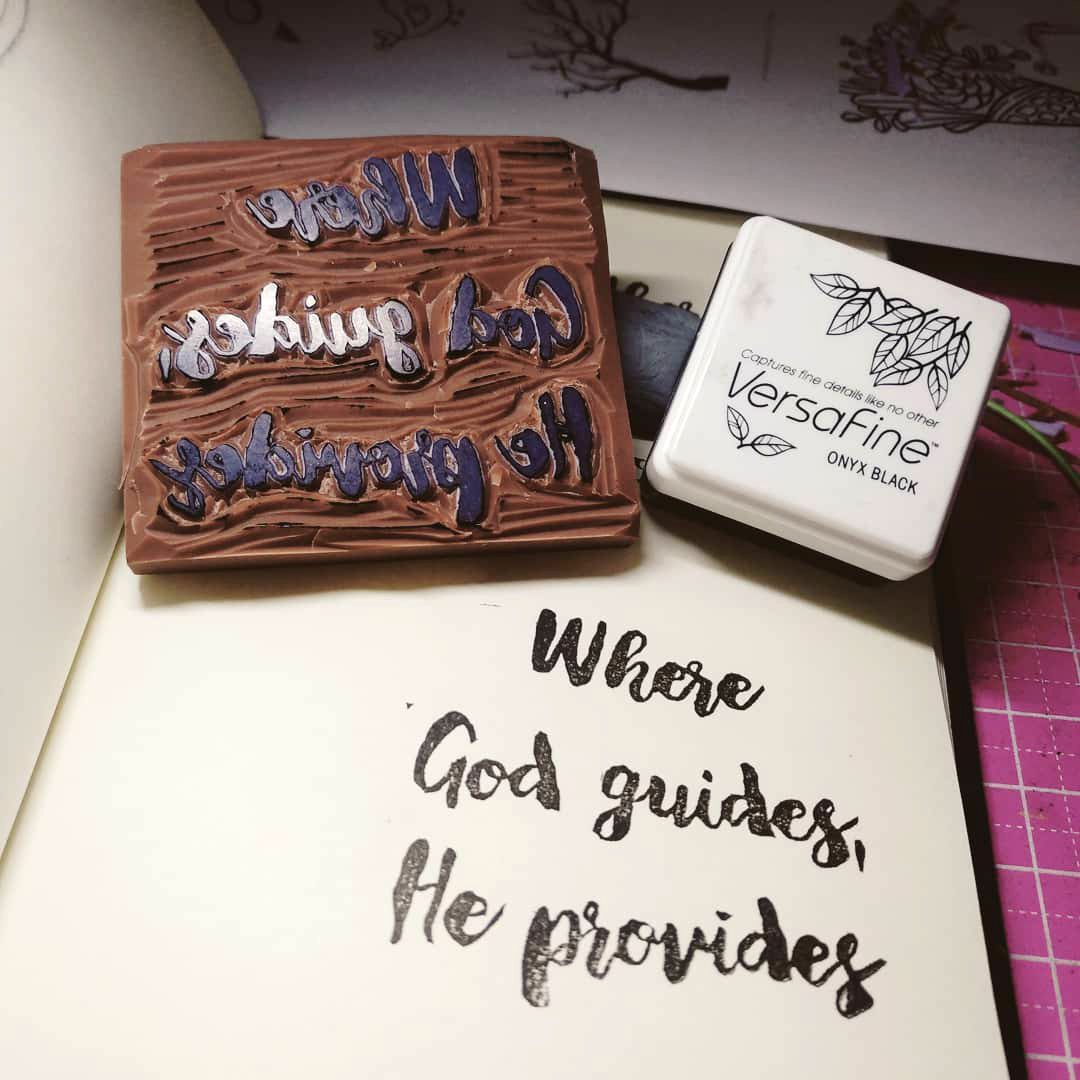 Where
God guides,
He provides
Captures fine details like no other
VersaFine™
ONYX BLACK
Where
God guides,
He provides